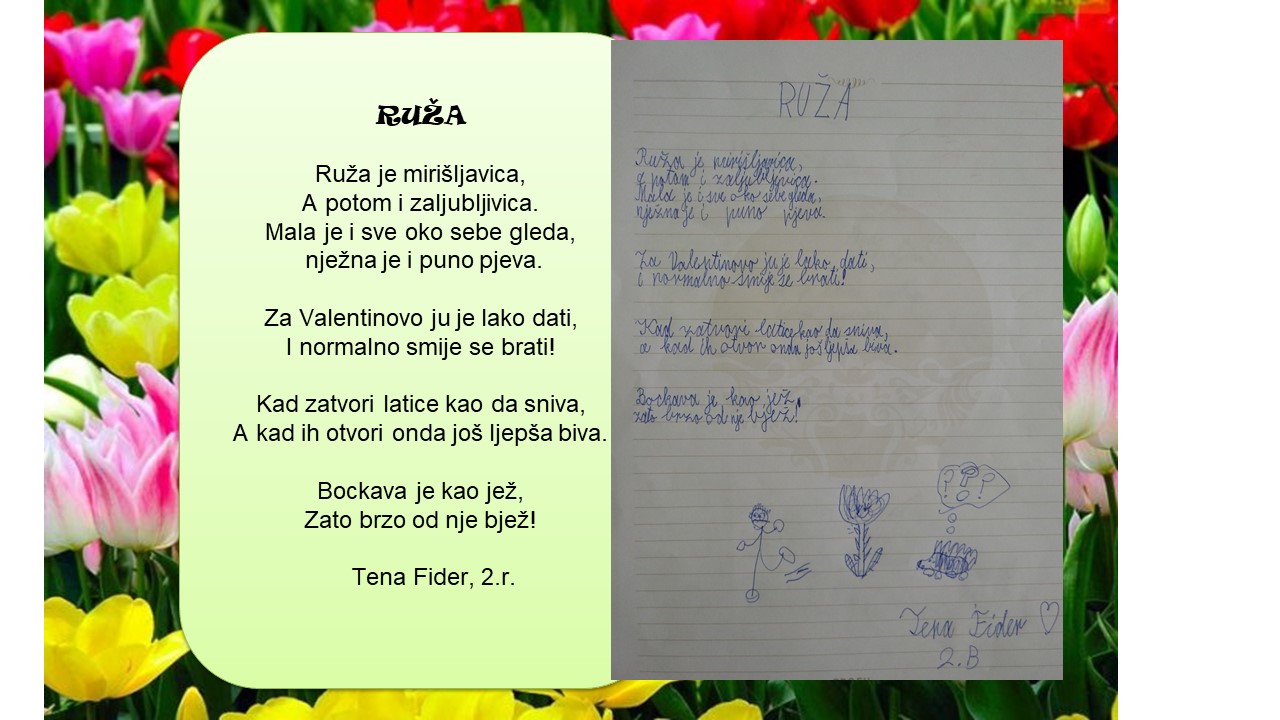 RUŽA
Ruža je mirišljavica,
A potom i zaljubljivica.
Mala je i sve oko sebe gleda,
nježna je i puno pjeva.
Za Valentinovo ju je lako dati,
I normalno smije se brati!
Kad zatvori latice kao da sniva,
A kad ih otvori onda još ljepša biva.
Bockava je kao jež,
Zato brzo od nje bjež!
Tena Fider, 2.r.
RUŽA
Ruža je mirišljavica,
a potom i zaljubljivica.
Mala je i sve oko sebe gleda,
nježna je i puno pjeva.
Za Valentinovo ju je lako dati,
i normalno smije se brati!
Kad zatvori latice kao da sniva,
a kad ih otvori onda još ljepša biva.
Bockava je kao jež,
zato brzo od nje bjež!
? ? ?
Tena Fider
2.B